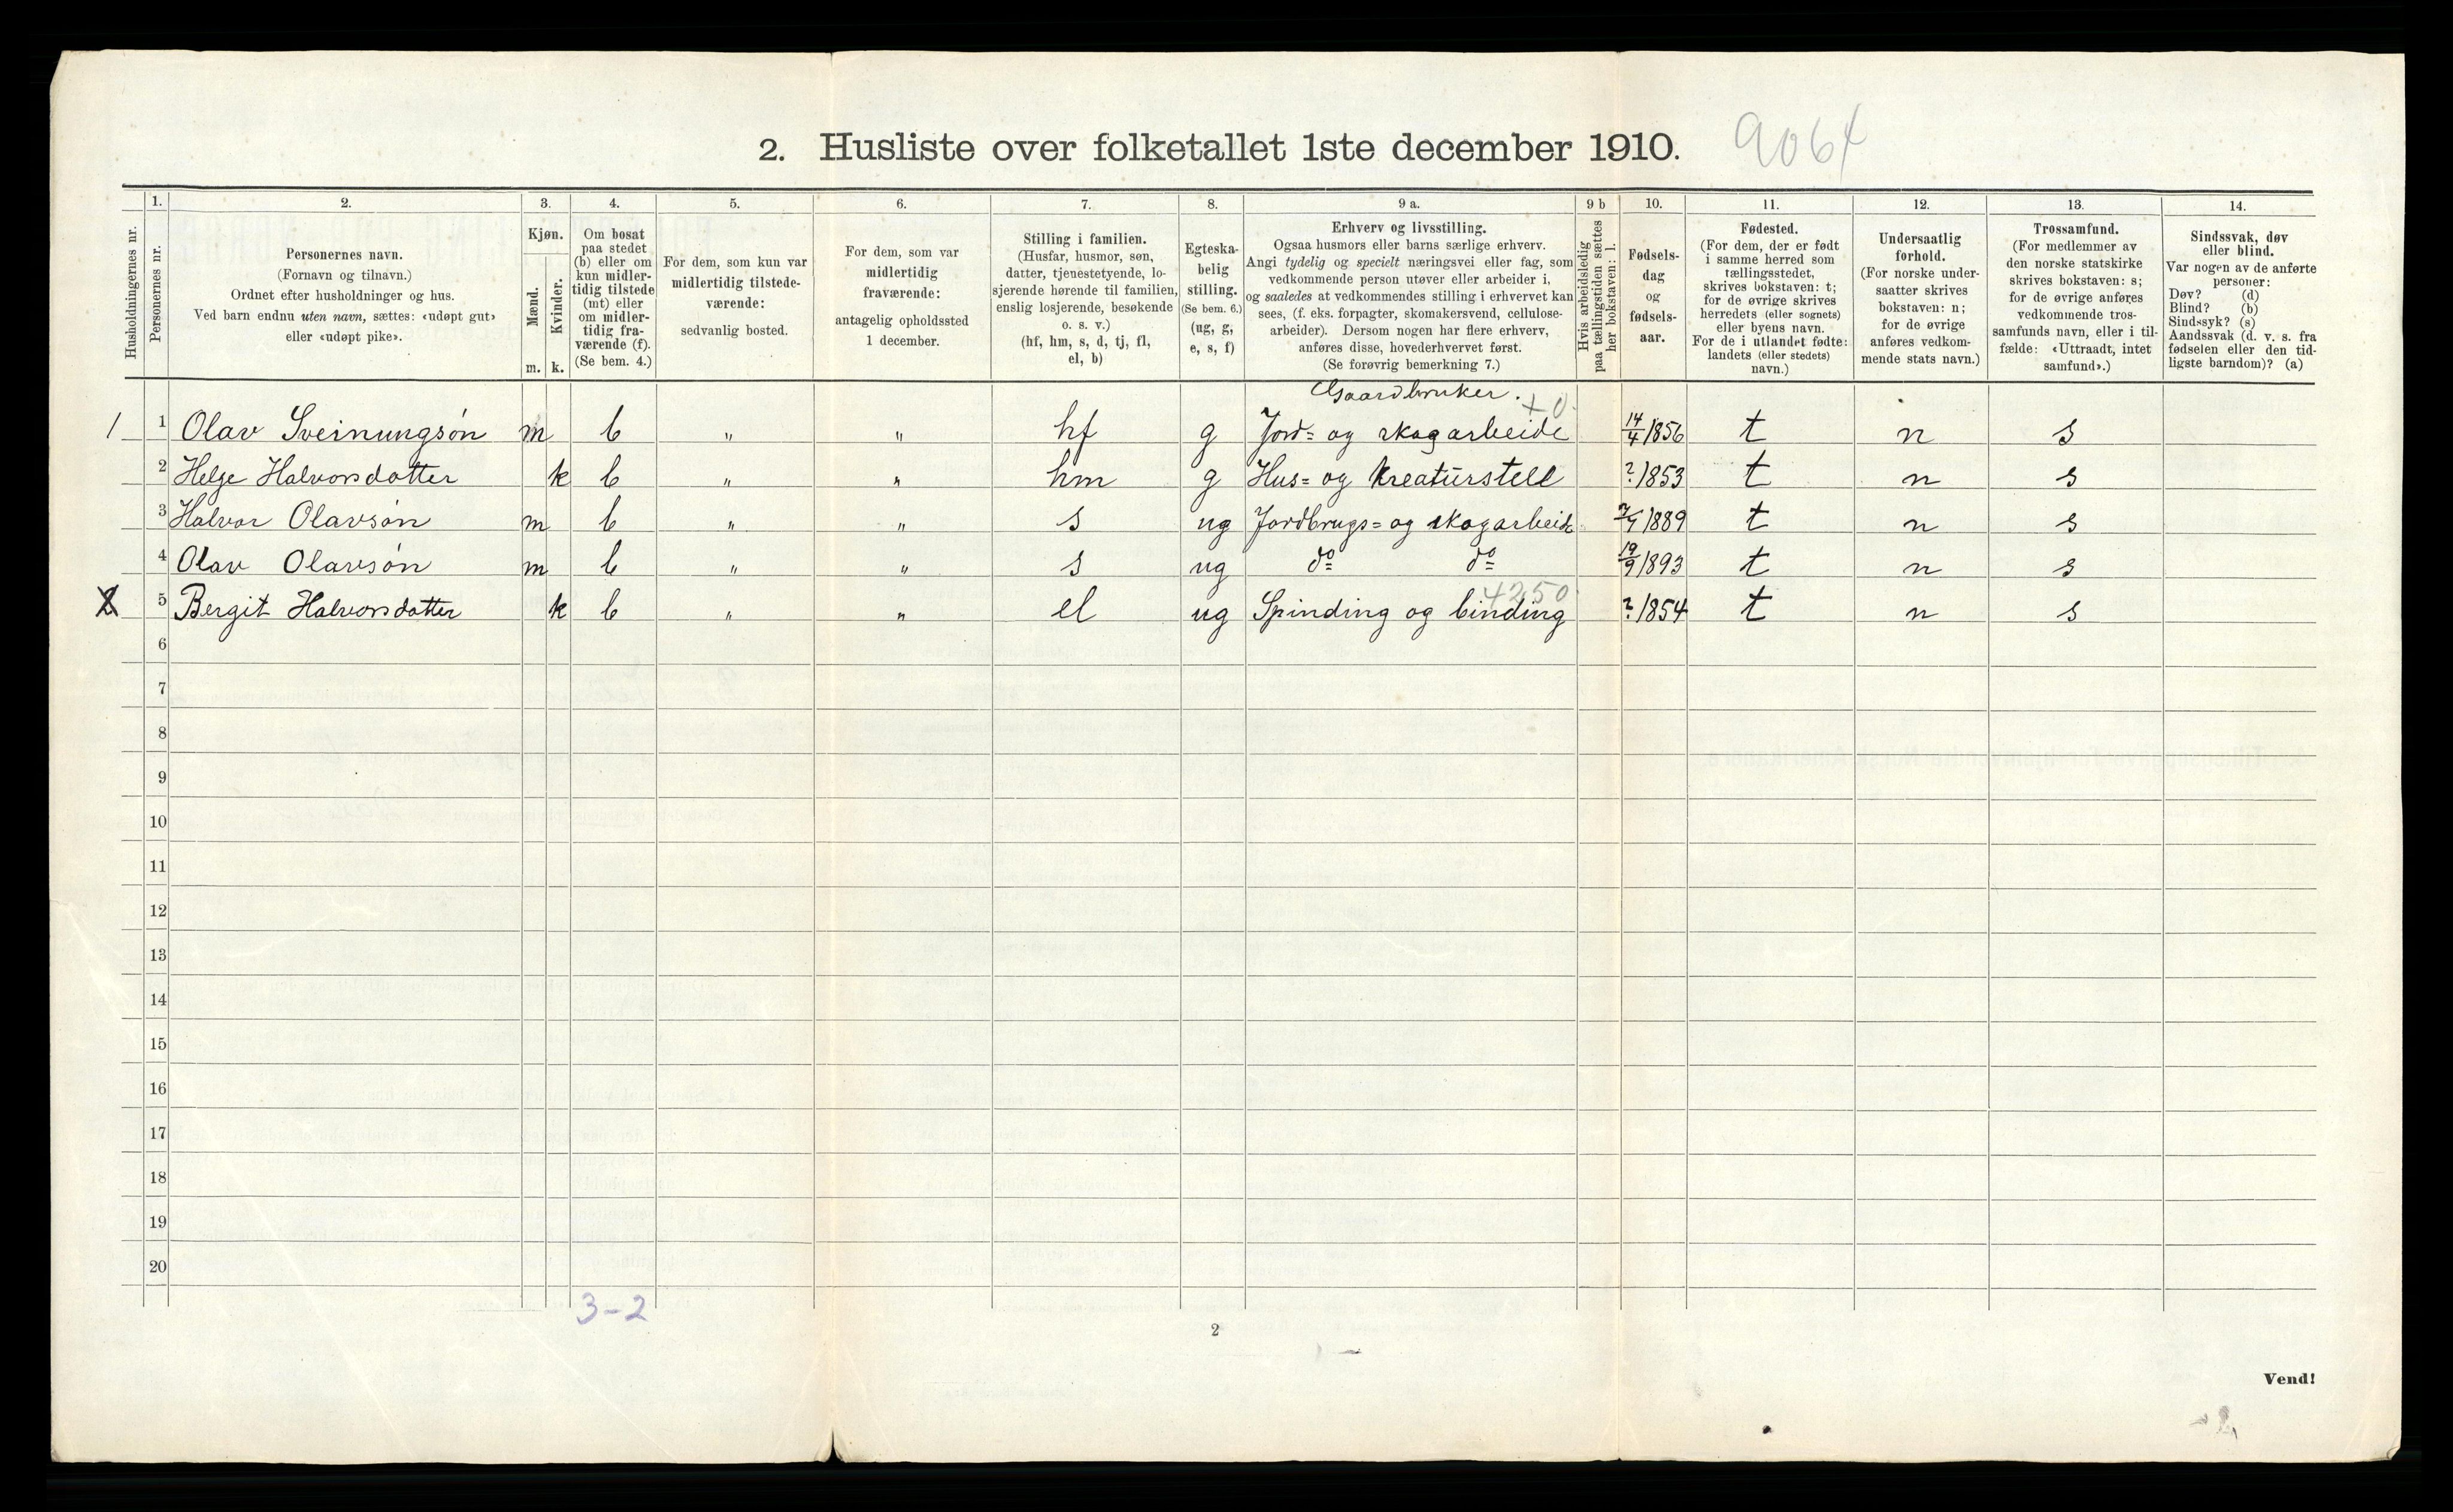 2. Husliste over folketallet 1ste december 1910.
9064
Husholdningernes nr.
1.
Personernes nr.
2.
Personernes navn.
(Fornavn og tilnavn.)
Ordnet efter husholdninger og hus.
Ved barn endnu uten navn, sættes: «udøpt gut»
eller «udøpt pike».
3.
Kjøn.
Mænd.
Kvinder.
m. k.
4.
Om bosat
paa stedet
(b) eller om
kun midler-
tidig tilstede
(mt) eller
om midler-
tidig fra-
værende (f).
(Se bem. 4.)
5.
For dem, som kun var
midlertidig tilstede-
værende:
sedvanlig bosted.
6.
For dem, som var
midlertidig
fraværende:
antagelig opholdssted
1 december.
7.
Stilling i familien.
(Husfar, husmor, søn,
datter, tjenestetyende, lo-
sjerende hørende til familien,
enslig losjerende, besøkende
o. s. v.)
(hf, hm, s, d, tj, fl,
el, b)
8.
Egteska-
belig
stilling.
(Se bem. 6.)
(ug, g,
e, s, f)
9 a.
Erhverv og livsstilling.
Ogsaa husmors eller barns særlige erhverv.
Angi tydelig og specielt næringsvei eller fag, som
vedkommende person utøver eller arbeider i,
og saaledes at vedkommendes stilling i erhvervet kan
sees, (f. eks. forpagter, skomakersvend, cellulose-
arbeider). Dersom nogen har flere erhverv,
anføres disse, hovederhvervet først.
(Se forøvrig bemerkning 7.)
9 b
Hvis arbeidsledig
paa tællingstiden sættes
her bokstaven: l.
10.
Fødsels-
dag
og
fødsels-
aar.
11.
Fødested.
(For dem, der er født
i samme herred som
tællingsstedet,
skrives bokstaven: t;
for de øvrige skrives
herredets (eller sognets)
eller byens navn.
For de i utlandet fødte:
landets (eller stedets)
navn.)
12.
Undersaatlig
forhold.
(For norske under-
saatter skrives
bokstaven: n;
for de øvrige
anføres vedkom-
mende stats navn.)
13.
Trossamfund.
(For medlemmer av
den norske statskirke
skrives bokstaven: s;
for de øvrige anføres
vedkommende tros-
samfunds navn, eller i til-
fælde: «Uttraadt, intet
samfund».)
14.
Sindssvak, døv
eller blind.
Var nogen av de anførte
personer:
Døv? (d)
Blind? (b)
Sindssyk? (s)
Aandssvak (d. v. s. fra
fødselen eller den tid-
ligste barndom)? (a)
Gaardbruker. +0.
1 1 Olav Sveinungsøn m b " " hf g Jord= og skogarbeide 14/4 1856 t n s
2 Helge Halvorsdatter k b " " hm g Hus= og kreaturstell ? 1853 t n s
3 Halvor Olavsøn m b " " s ug Jordbrugs= og skogarbeide 1889 t n s
4 Olav Olavsøn m b " " s ug do do 19/9 1893 t n s
4250
2 5 Bergit Halvorsdatter k b " " el ug Spinding og binding ? 1854 t n s
6
7
8
9
10
11
12
13
14
15
16
17
18
19
20
3-2
2
Vend!